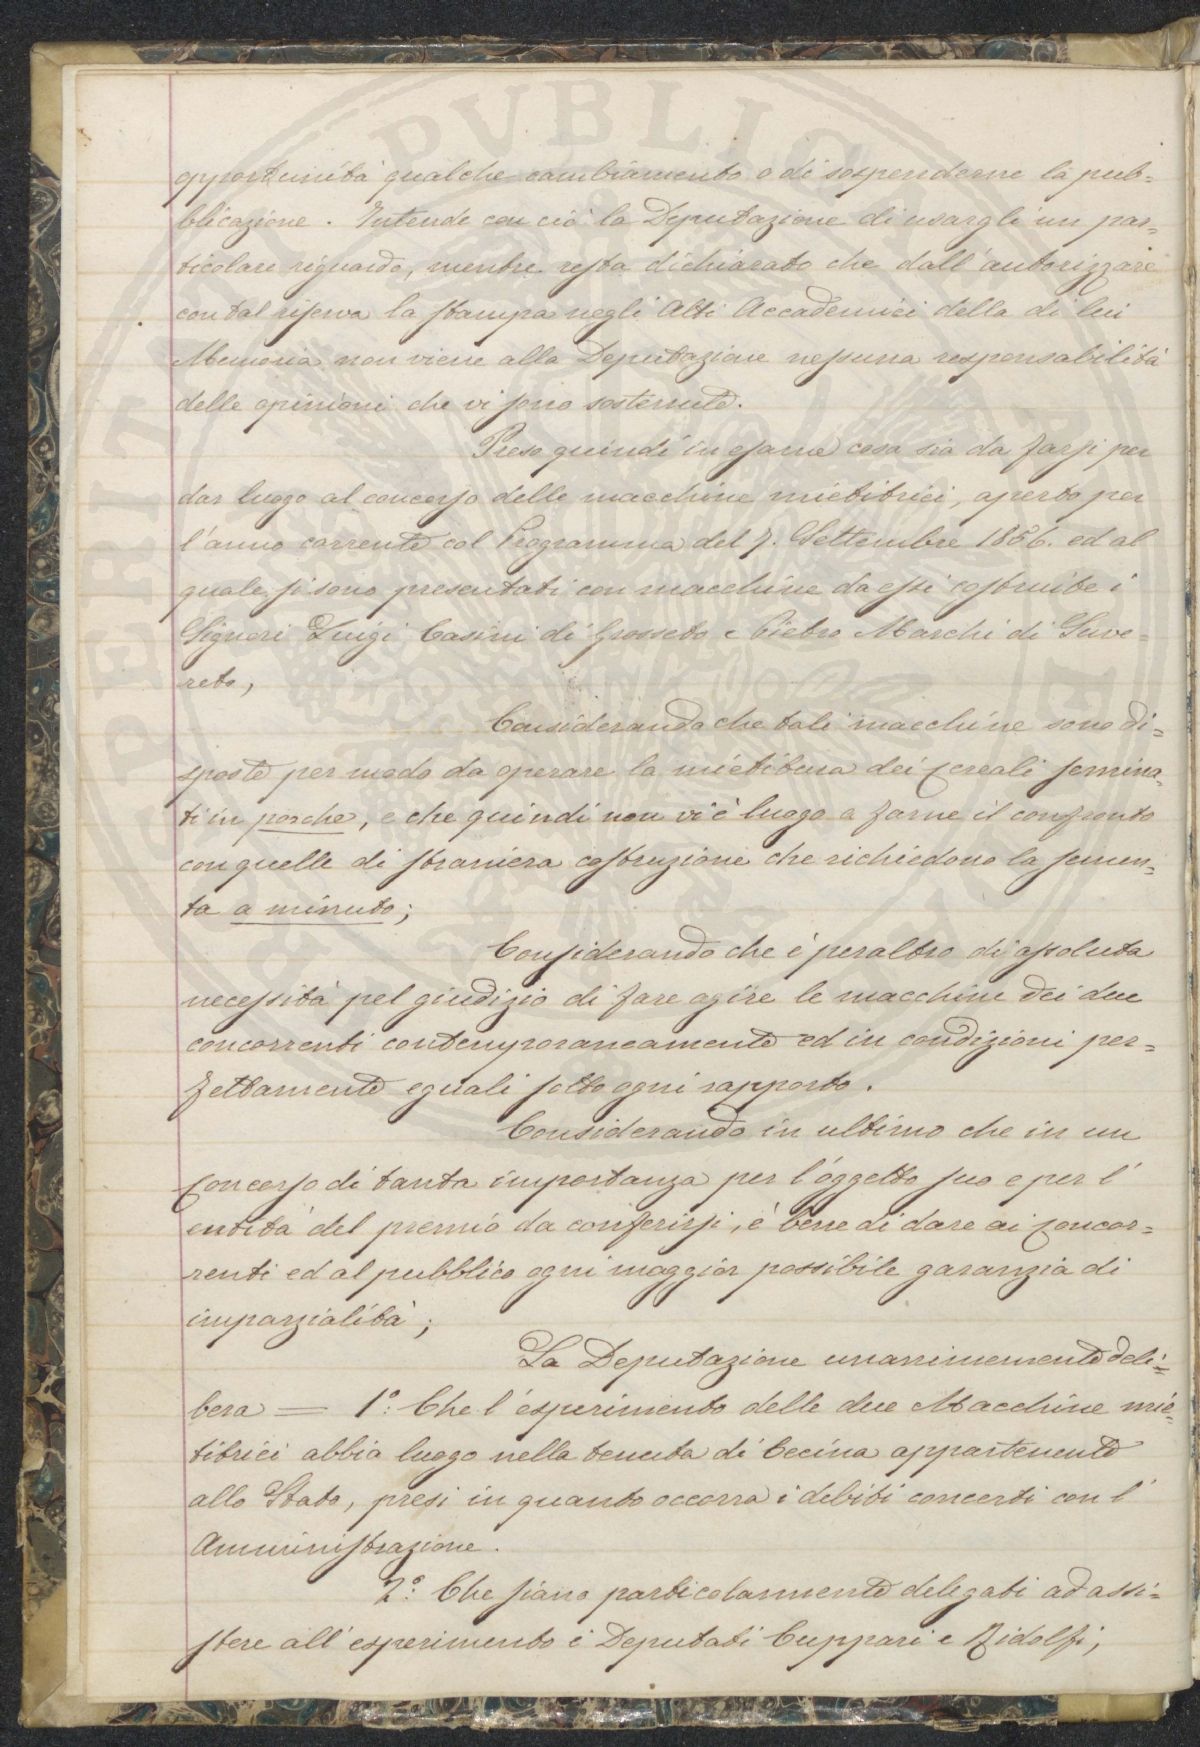 opportunità qualche cambiamento o di sospenderne la pub=
blicazione. Intende con ciò la Deputazione di usargli un par=
ticolare riguardo, mentre resta dichiarato che dall'autorizzare
con tal riserva la stampa negli Atti Accademici della di lui
Memoria non viene alla Deputazione nessuna responsabilità
delle opinioni che vi sono sostenute.
Preso quindi in esame cosa sia da farsi per
dar luogo al concorso delle macchine mietitrici, aperto per
l'anno corrente col Programma del 7. Settembre 1856. ed al
quale si sono presentati con macchine da essi costruite i
Signori Luigi Casini di Grosseto e Pietro Marchi di Suve=
reto,
Considerando che tali macchine sono di=
sposte per modo da operare la mietitura dei cereali semina=
ti in porche, e che quindi non vi è luogo a farne il confronto
con quelle di straniera costruzione che richiedono la semen=
ta a minuto;
Considerando che è peraltro di assoluta
necessità pel giudizio di fare agire le macchine dei due
concorrenti contemporaneamente ed in condizioni per=
fettamente eguali sotto ogni rapporto.
Considerando in ultimo che in un
Concorso di tanta importanza per l'oggetto suo e per l'
entità del premio da conferirsi, è bene di dare ai concor=
renti ed al pubblico ogni maggior possibile garanzia di
imparzialità;
La Deputazione unanimemente deli=
bera = 1º: Che l'esperimento delle due Macchine mie=
titrici abbia luogo nella tenuta di Cecina appartenente
allo Stato, presi in quanto occorra i debiti concerti con l'
Amministrazione.
2º: Che siano particolarmente delegati ad assi=
stere all'esperimento i Deputati Cuppari e Ridolfi;